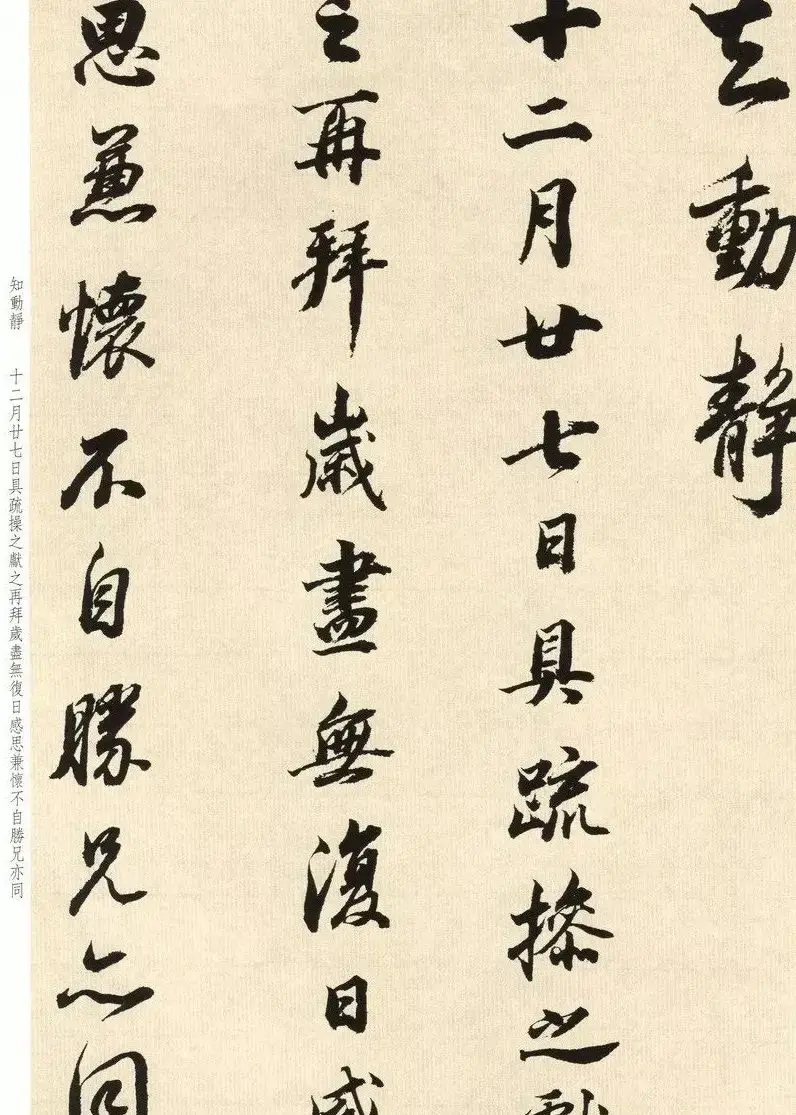 知動靜
十二月廿七日具疏操之獻
之再拜歲盡無復日感
思兼懷不自勝兄亦同
知動靜 十二月廿七日具疏操之獻之再拜歲盡無復日感思兼懷不自勝兄亦同